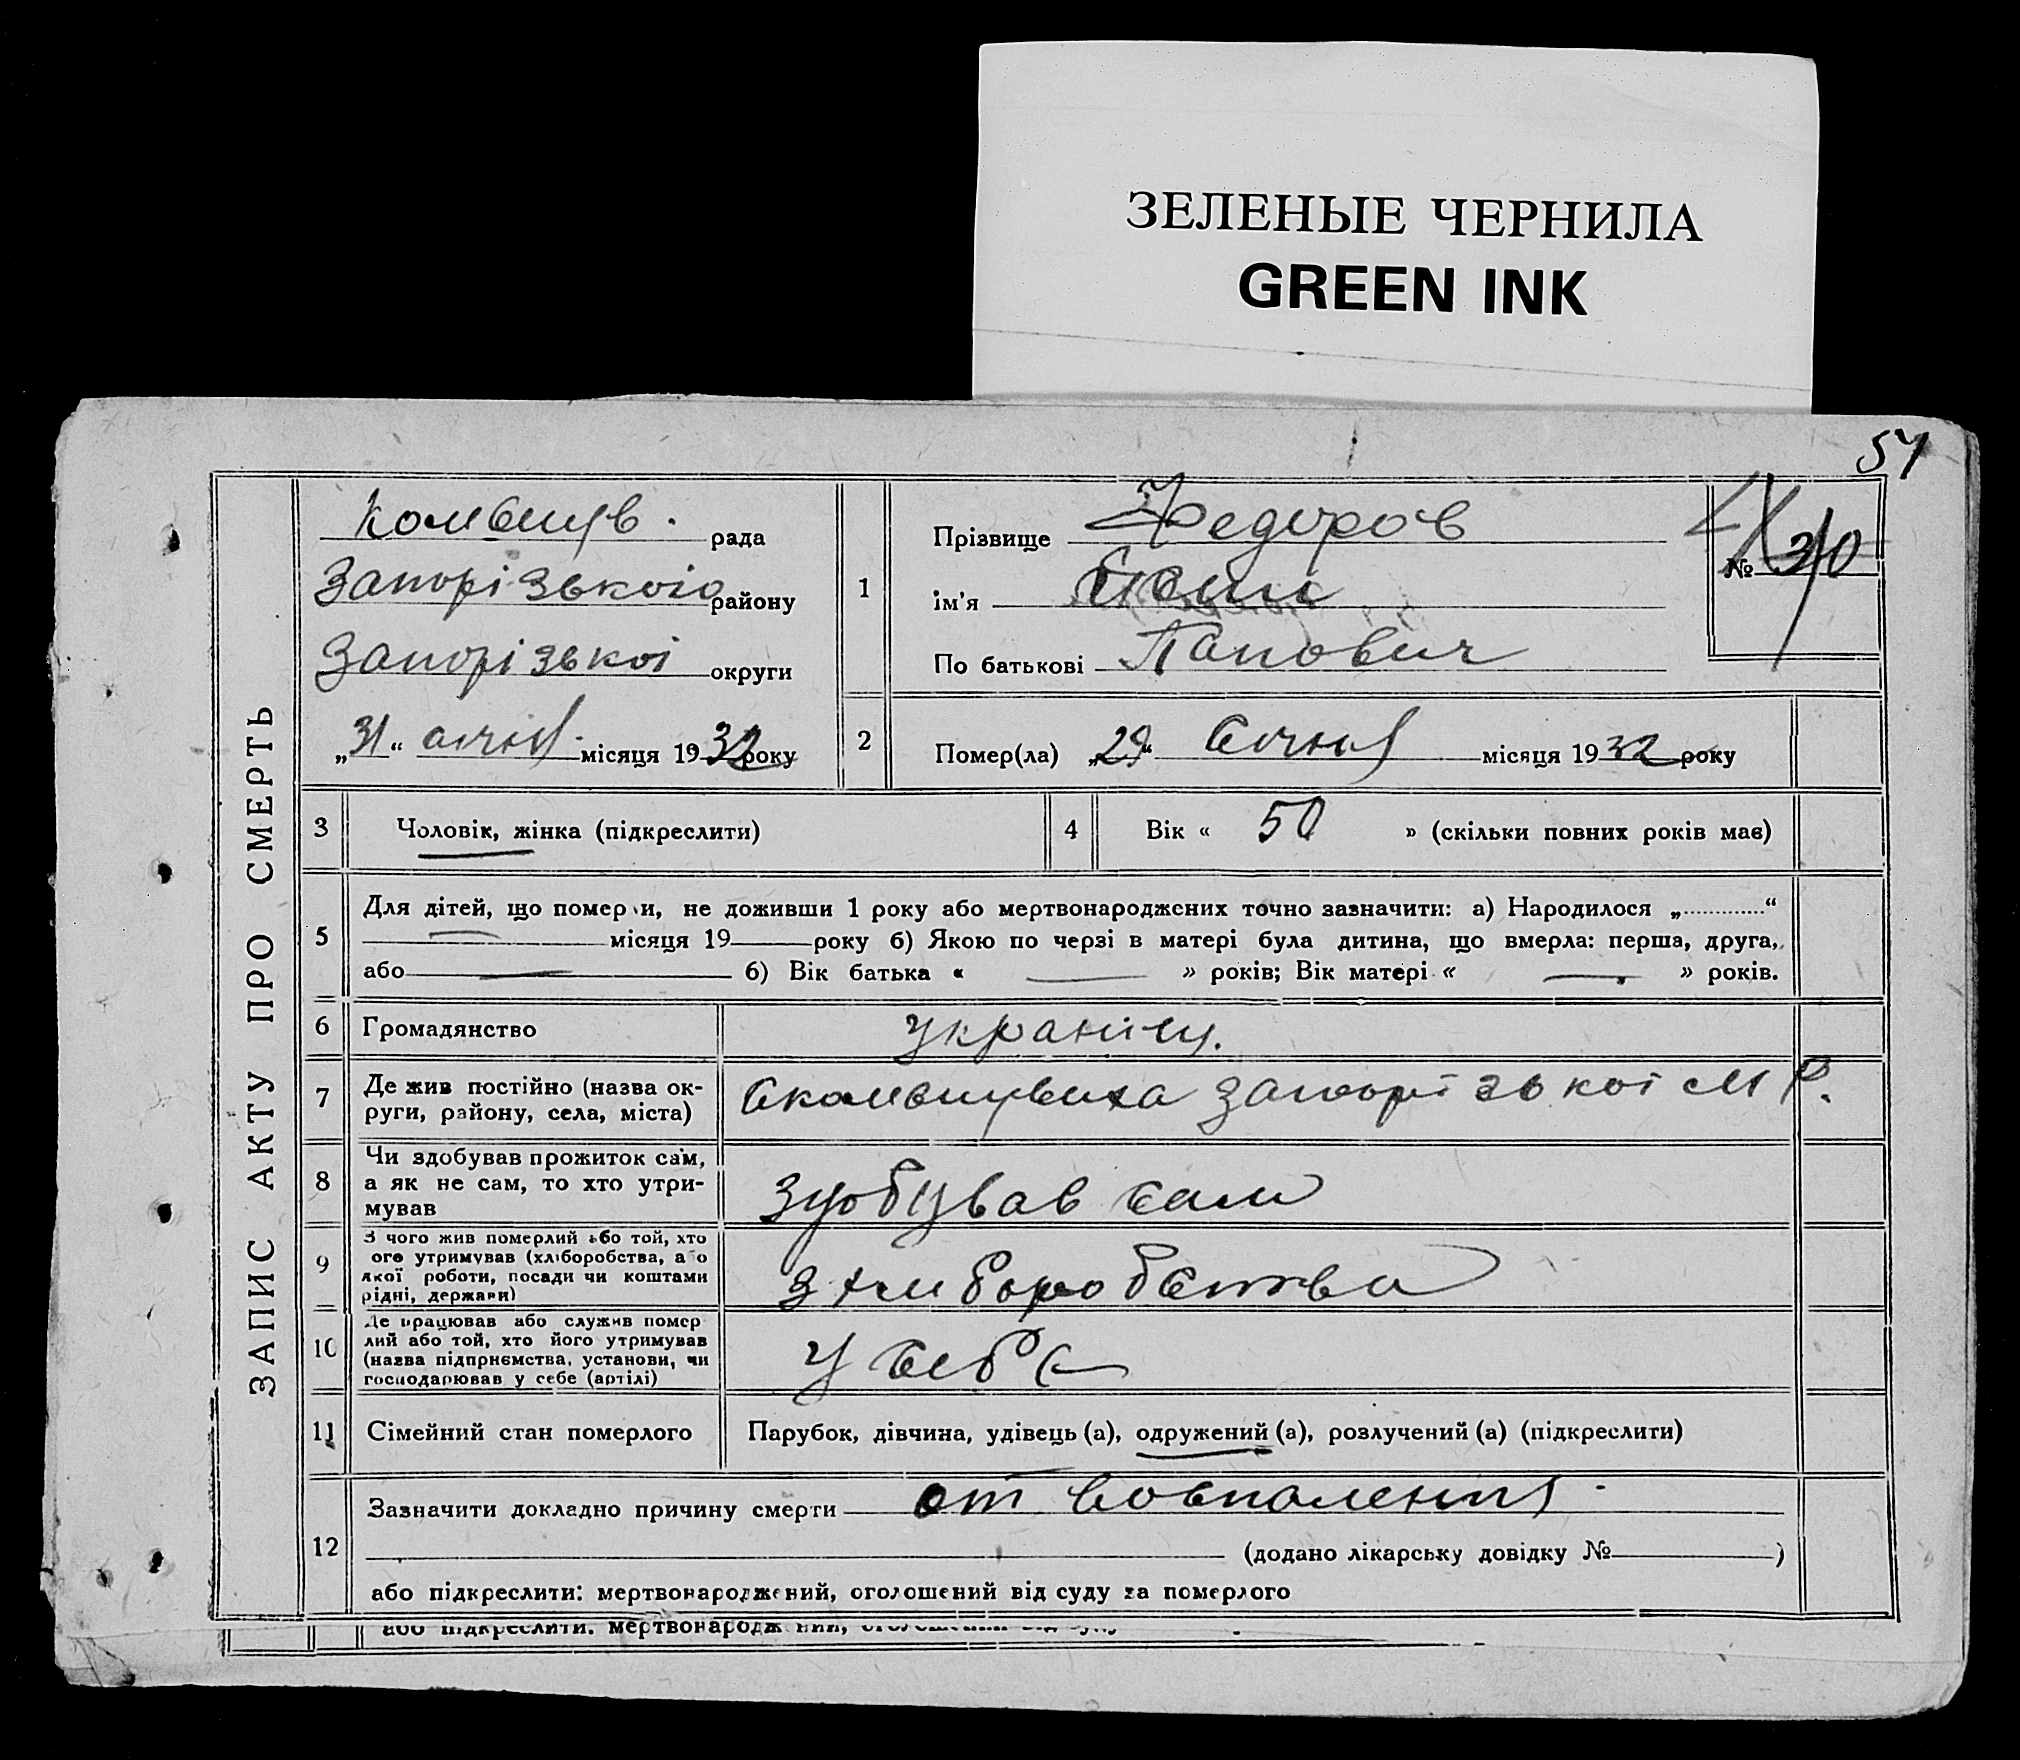 ЗЕЛЕНЫЕ ЧЕРНИЛА
GREEN INK
54
ЗАПИС АКТУ ПРО СМЕРТЬ
рада
Запорізького району
Запорізькоі округи
„31“ січня місяця 1932 року
1
Прізвище Федоров
ім'я
По батькові Папович
№ 30
2
Помер(ла) „29“ Січня місяця 1932 року
3 Чоловік, жінка (підкреслити)
4 Вік « 50 » (скільки повних років має)
5
Для дітей, що померли, не доживши 1 року або мертвонароджених точно зазначити: а) Народилося „............“
місяця 19 року б) Якою по черзі в матері була дитина, що вмерла: перша, друга,
або б) Вік батька « — » років; Вік матері « — » років.
6 Громадянство
7 Де жив постійно (назва ок-
руги, району, села, міста)
Запорізькоі М Р.
8 Чи здобував прожиток сам,
а як не сам, то хто утри-
мував
здобував сам
9 З чого жив померлий або той, хто
ого утримував (хліборобства, або
якої роботи, посади чи коштами
рідні, держави)
з хлиборобства
10 Де працював або служив помер
лий або той, хто його утримував
(назва підприємства, установи, чи
господарював у себе (артілі)
У себе
11 Сімейний стан померлого
Парубок, дівчина, удівець (а), одружений (а), розлучений (а) (підкреслити)
12
Зазначити докладно причину смерти от воспаления
(додано лікарську довідку № )
або підкреслити: мертвонароджений, оголошений від суду за померлого
або підкреслити: мертвонароджений,